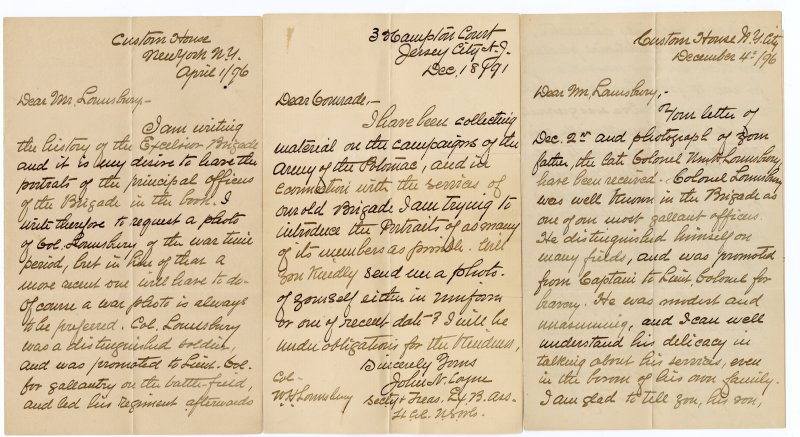 Custom House
New York N.Y.
April 1/96
Dear Mr. Lounsbury,-
I am writing
the history of the Excelsior Brigade
and it is my desire to have the
portraits of the principal officers
of the Brigade in the book. I
write therefore to request a photo
of Col. Lounsbury of the war time
period, but in lieu of that a
more recent one will have to do-
Of course a war photo is always
to be preferred. Col. Lounsbury
was a distinguished soldier,
and was promoted to Lieut. Col.
for gallantry on the battle-field,
and led his regiment afterwards
3 Hampton Court
Jersey City N.J.
Dec. 18/91
Dear Comrade,-
I have been collecting
material on the campaigns of the
Army of the Potomac, and in
connection with the services of
our old Brigade I am trying to
introduce the Portraits of as many
of its members as possible. Will
you kindly send me a photo.
of yourself either in uniform
or one of recent date? I will be
under obligations for the kindness,
Sincerely Yours
John N. Coyne
Secty & Treas. Ex. B. Ass.
Col-
W. H. Lounsbury
Custom House N.Y. City
December 4th/96
Dear Mr. Lounsbury,-
Your letter of
Dec. 2nd and photograph of your
father, the late Colonel Wm H. Lounsbury,
have been received. Colonel Lounsbury
was well known in the Brigade as
one of our most gallant officers.
He distinguished himself on
many fields, and was promoted
from Captain to Lieut. Colonel for
bravery. He was modest and
unassuming, and I can well
understand his delicacy in
talking about his services, even
in the bosom of his own family.
I am glad to tell you, his son,